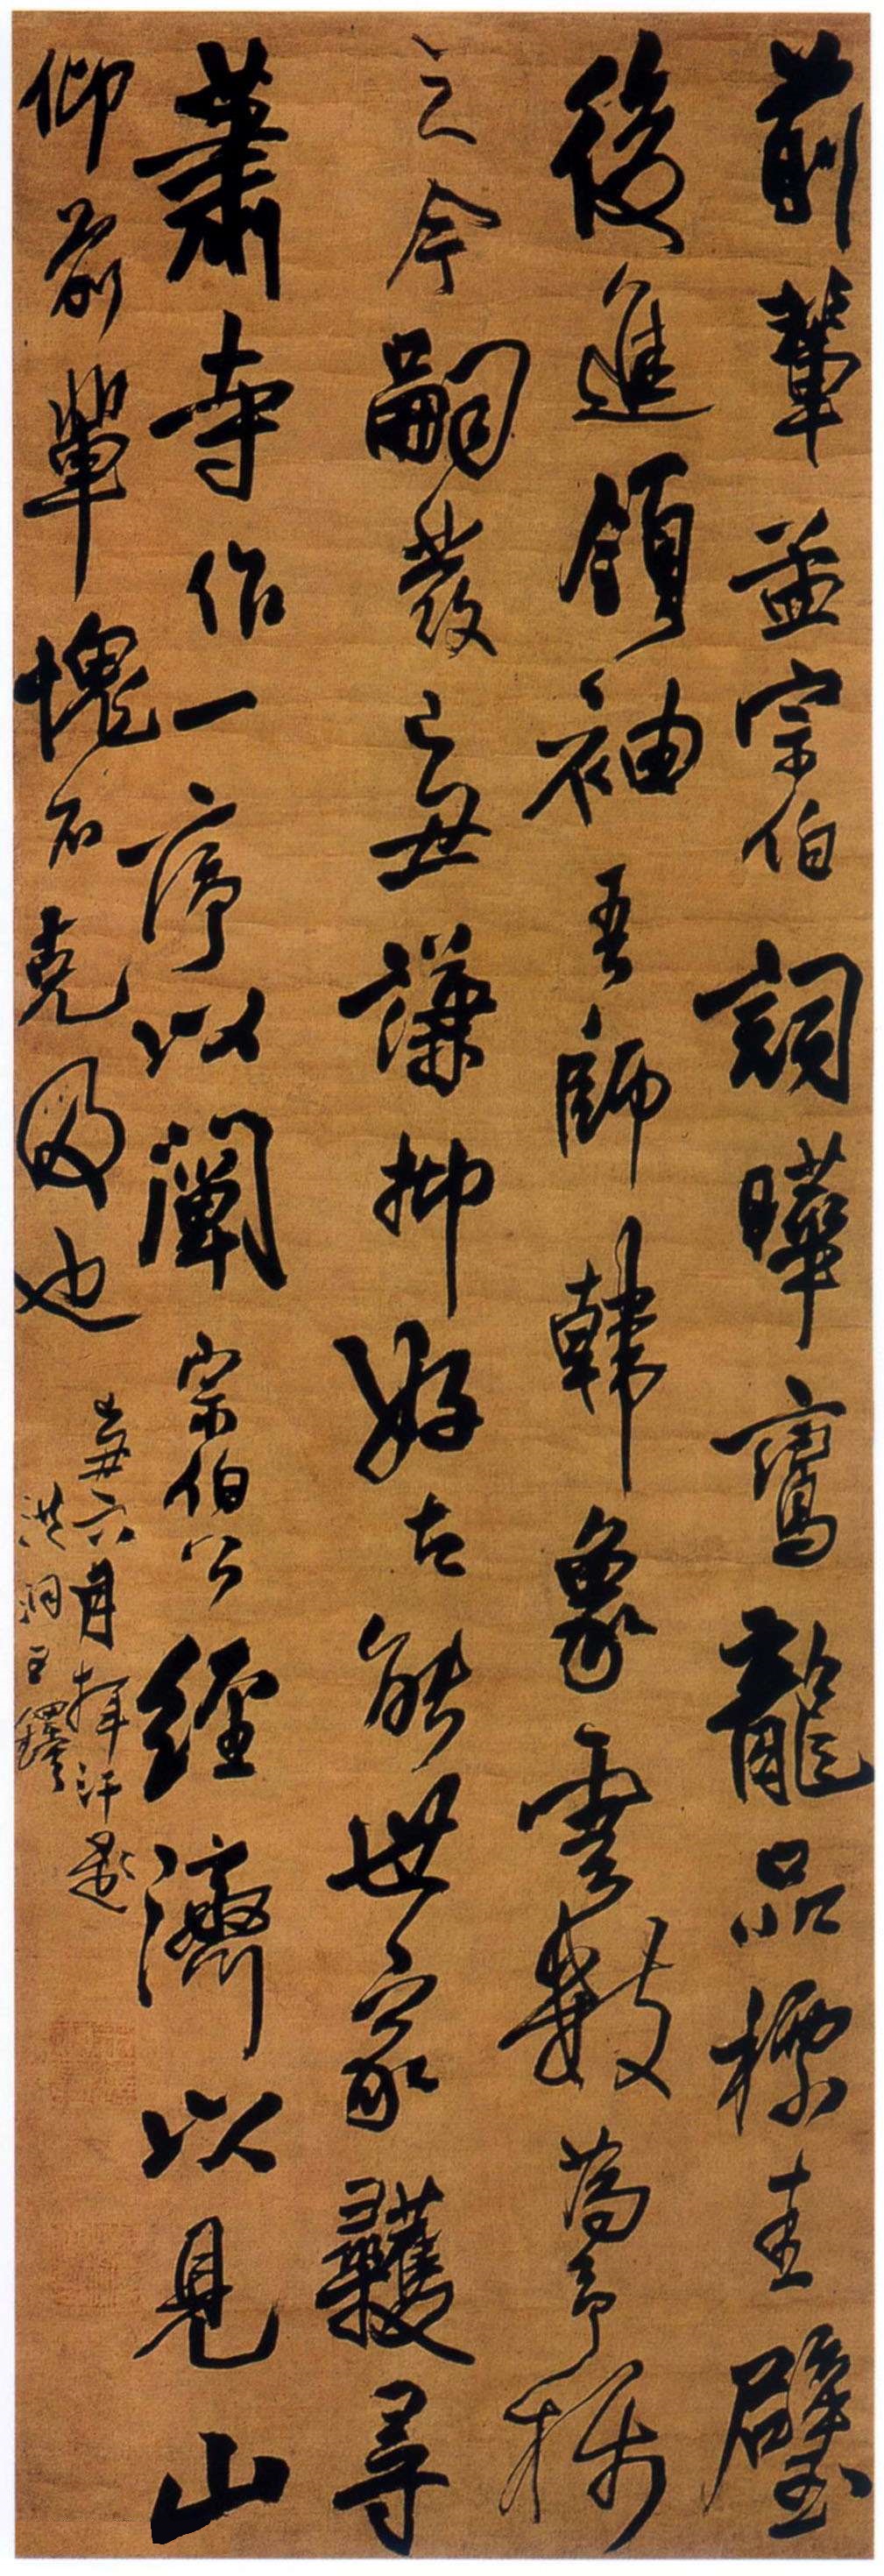 前輩孟宗伯詞曄鸞龍品標圭璧
後進領袖吾師韓象雲數為予稱
之今嗣發己丑謙抑好古能世家彠尋
蕭寺作一序以闡宗伯公經濟以見山
仰前輩愧不克多也
己丑六月揮汗題
洪洞王鐸